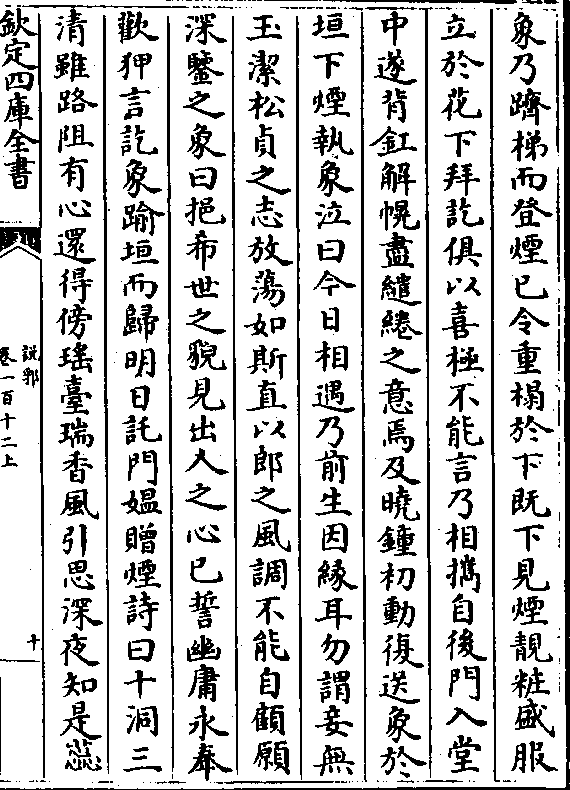 象乃躋梯而登煙已令重榻於下既下見煙靚粧盛服
立於花下拜訖俱以喜極不能言乃相攜自後門入堂
中遂背釭解幌盡繾綣之意焉及曉鐘初動復送象於
垣下煙執象泣曰今日相遇乃前生因緣耳勿謂妾無
玉潔松貞之志放蕩如斯直以郎之風調不能自顧願
深鑒之象曰挹希世之貌見出人之心已誓幽庸永奉
歡狎言訖象踰垣而歸明日託門媼贈煙詩曰十洞三
清雖路阻有心還得傍瑤臺瑞香風引思深夜知是蕊
欽定四庫全書
說郛
卷一百十二上
十